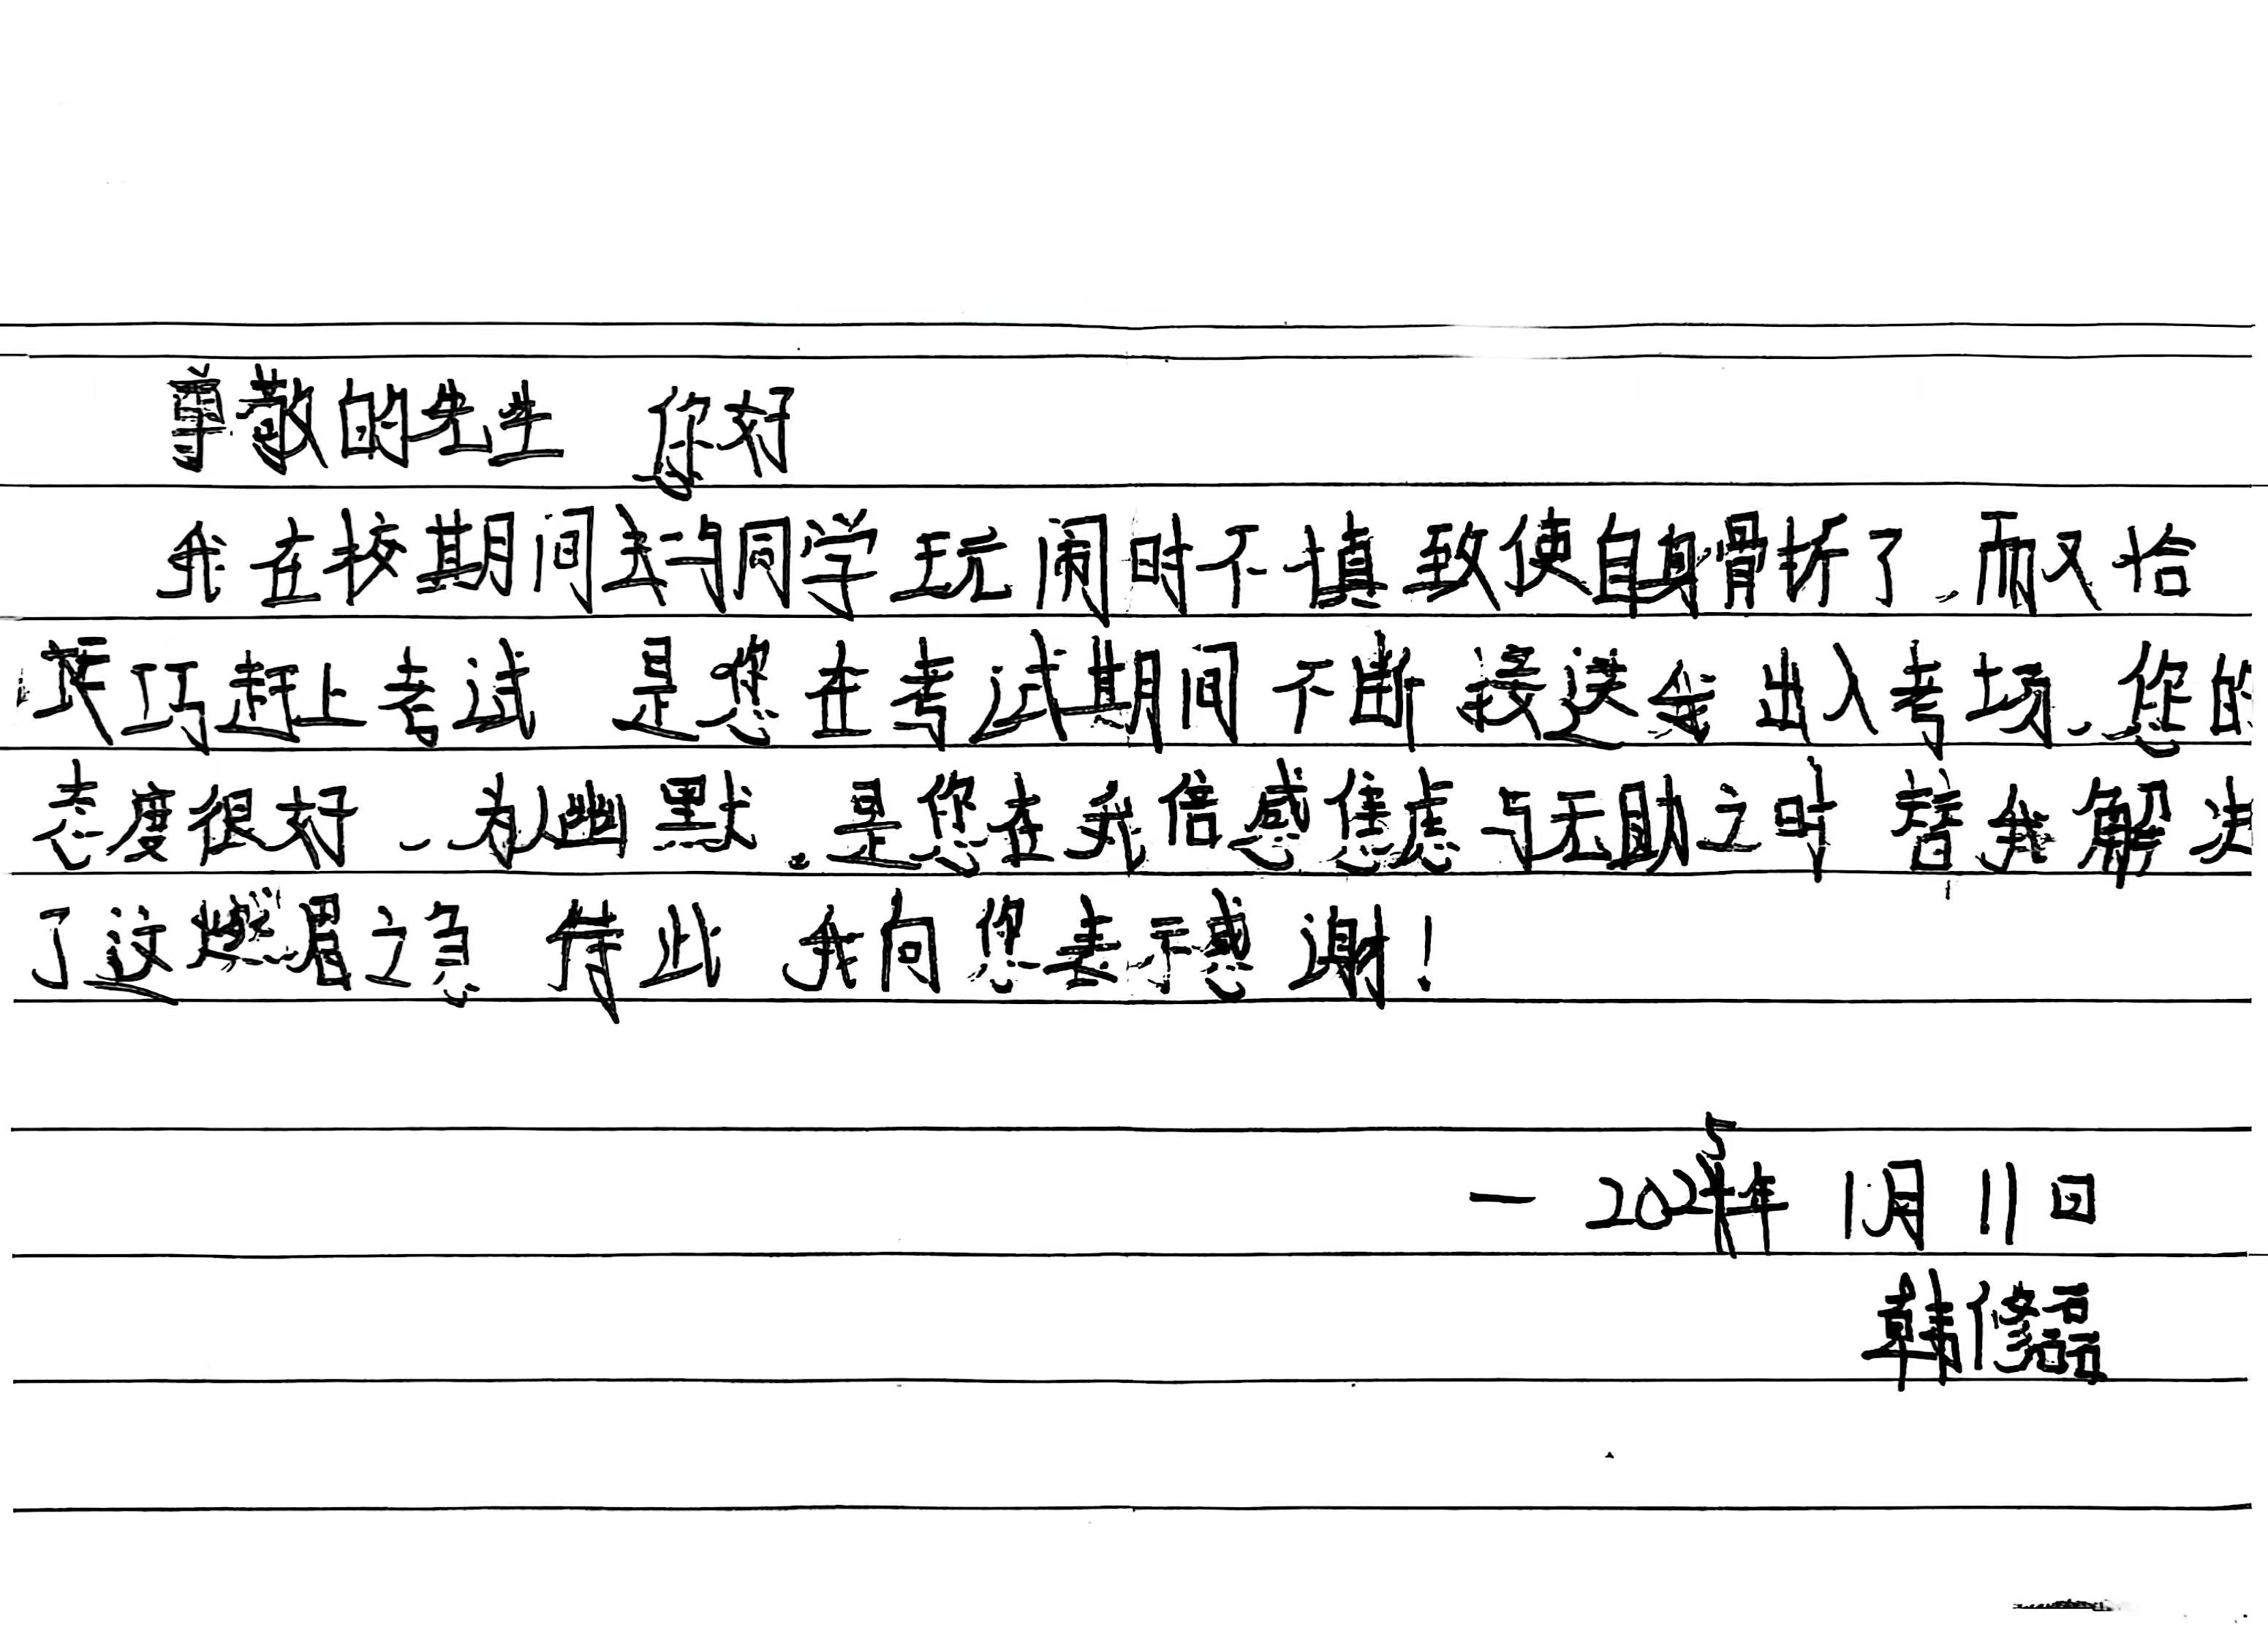 尊敬的先生 您好
我在校期间去与同学玩闹时不慎致使自身骨折了,而又恰
巧赶上考试 是您在考试期间不断接送我出入考场、您的
态度很好、为人幽默。是您在我倍感焦虑与无助之时 替我解决
了这燃眉之急 特此 我向您表示感谢!
— 2025年 1月 11日
韩修磊